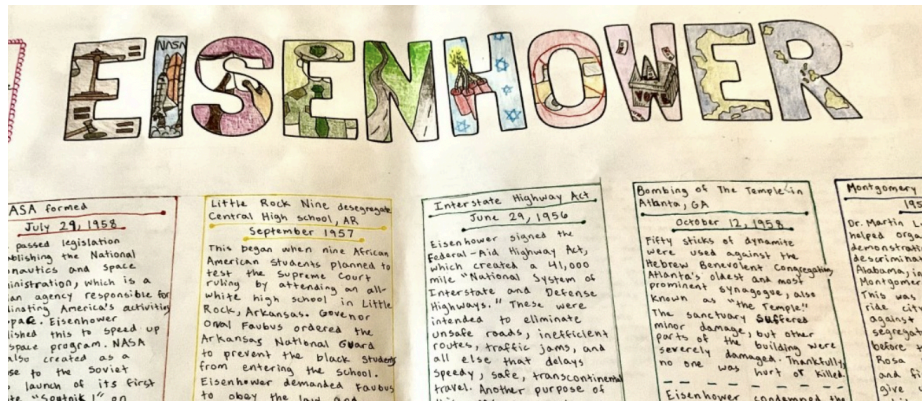 EISENHOWER
NASA
ASA formed
July 29, 1958
passed legislation
blishing the National
nautics and Space
inistration, which is a
an agency responsible for
inating America's activities
pace. Eisenhower
lished this to speed up
space program. NASA
also created as a
se to the Soviet
launch of its first
te "Sputnik 1" on
Little Rock Nine desegregate
Central High school, AR
September 1957
This began when nine African
American students planned to
test the Supreme Court
ruling by attending an all-
white high school in Little
Rock, Arkansas. Governor
Orval Faubus ordered the
Arkansas National Guard
to prevent the black students
from entering the school.
Eisenhower demanded Faubus
to obey the law and
Interstate Highway Act
June 29, 1956
Eisenhower signed the
Federal-Aid Highway Act,
which created a 41,000
mile "National System of
Interstate and Defense
Highways." These were
intended to elliminate
unsafe roads, inefficient
routes, traffic jams, and
all else that delays
speedy, safe, transcontinental
travel. Another purpose of
Bombing of The Temple in
Atlanta, GA
October 12, 1958
Fifty sticks of dynamite
were used against the
Hebrew Benevolent Congregation,
Atlanta's oldest and most
prominent synagogue, also
known as "the Temple."
The sanctuary suffered
minor damage, but other
parts of the building were
severely damaged. Thankfully,
no one was hurt or killed.
Eisenhower condemned the
Montgomery
19
Dr. Martin L
helped orga
demonstrat
descriminat
Alabama, i
Montgome
This was
ride cit
against
segreg
before t
Rosa
and fi
give